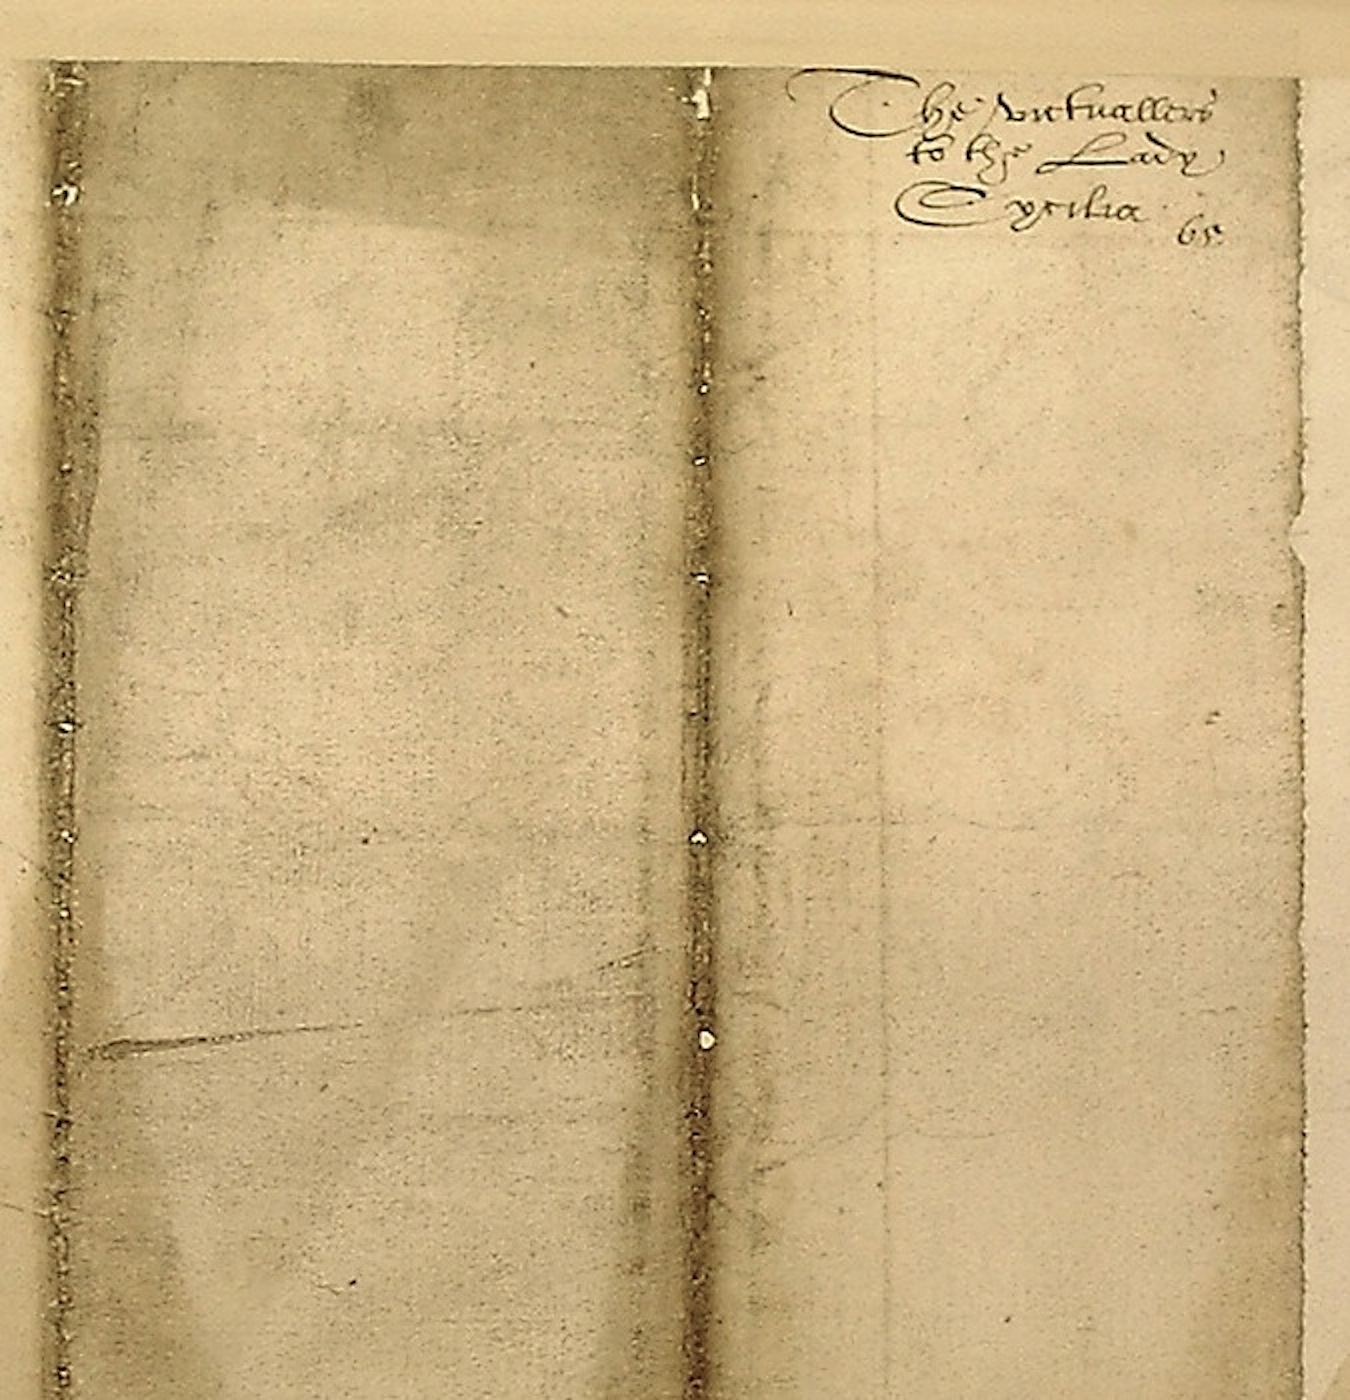 The victuallers
to the Lady
Cycilia
65